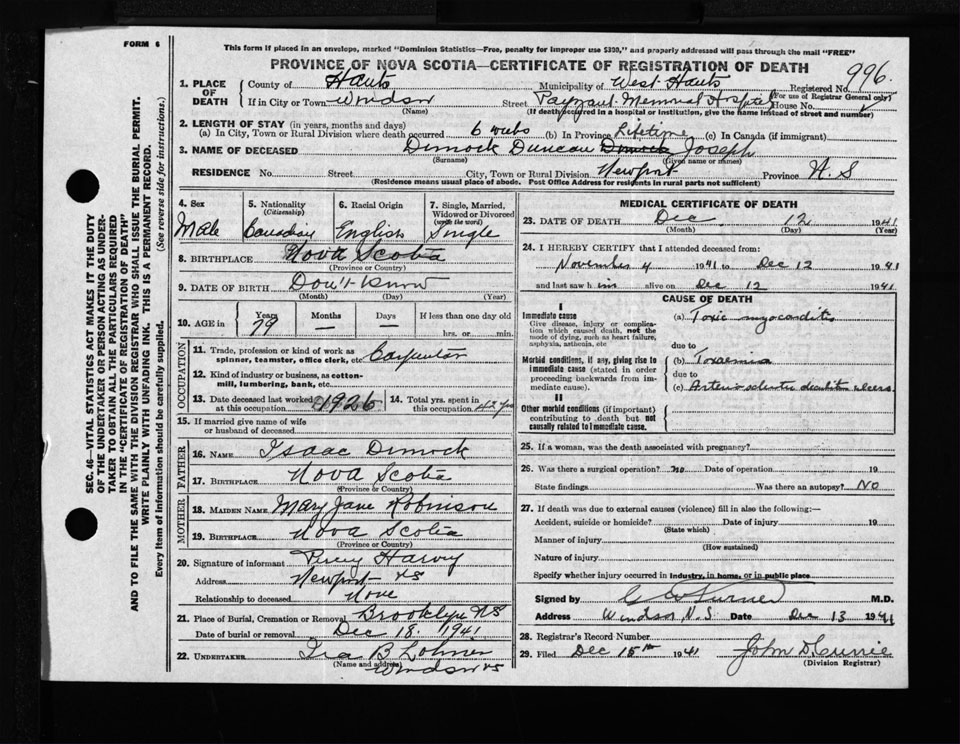 FORM 6
This form if placed in an envelope, marked "Dominion Statistics—Free, penalty for improper use $300," and properly addressed will pass through the mail "FREE"
PROVINCE OF NOVA SCOTIA—CERTIFICATE OF REGISTRATION OF DEATH
996
1. PLACE OF DEATH County of Hants Municipality of West Hants Registered No.
(For use of Registrar General only)
If in City or Town Windsor Street Payzant Memorial Hospital House No.
(Name) (If death occurred in a hospital or institution, give the name instead of street and number)
2. LENGTH OF STAY (in years, months and days)
(a) In City, Town or Rural Division where death occurred 6 weeks (b) In Province Lifetime (c) In Canada (if immigrant)
3. NAME OF DECEASED Dimock Duncan Dimock Joseph
(Surname) (Given name or names)
RESIDENCE No. Street City, Town or Rural Division Newport Province N.S
(Residence means usual place of abode. Post Office Address for residents in rural parts not sufficient)
4. Sex 5. Nationality (Citizenship) 6. Racial Origin 7. Single, Married, Widowed or Divorced (write the word)
Male Canadian English Single
8. BIRTHPLACE Nova Scotia
(Province or Country)
9. DATE OF BIRTH Don't Know
(Month) (Day) (Year)
10. AGE in Years Months Days If less than one day old
79 — — hrs. or min.
OCCUPATION
11. Trade, profession or kind of work as spinner, teamster, office clerk, etc. Carpenter
12. Kind of industry or business, as cotton-mill, lumbering, bank, etc.
13. Date deceased last worked at this occupation 1926 14. Total yrs. spent in this occupation 42 yrs
15. If married give name of wife or husband of deceased
FATHER
16. NAME Isaac Dimock
17. BIRTHPLACE Nova Scotia
(Province or Country)
MOTHER
18. MAIDEN NAME Mary Jane Robinson
19. BIRTHPLACE Nova Scotia
(Province or Country)
20. Signature of informant Percy Harvey
Address Newport NS
Relationship to deceased None
21. Place of Burial, Cremation or Removal Brooklyn NS
Date of burial or removal Dec 18. 1941
22. UNDERTAKER Ira B Lohnes
(Name and address) Windsor NS
MEDICAL CERTIFICATE OF DEATH
23. DATE OF DEATH Dec 12 1941
(Month) (Day) (Year)
24. I HEREBY CERTIFY that I attended deceased from:
November 4 1941 to Dec 12 1941
and last saw him alive on Dec 12 1941
CAUSE OF DEATH
I
Immediate cause
Give disease, injury or complication which caused death, not the mode of dying, such as heart failure, asphyxia, asthenia, etc
(a) Toxic myocarditis
due to
Morbid conditions, if any, giving rise to immediate cause (stated in order proceeding backwards from immediate cause).
(b) Toxaemia
due to
(c) Arteriosclerotic decubitus ulcers.
II
Other morbid conditions (if important) contributing to death but not causally related to immediate cause.
25. If a woman, was the death associated with pregnancy?
26. Was there a surgical operation? no Date of operation 19
State findings Was there an autopsy? No
27. If death was due to external causes (violence) fill in also the following:—
Accident, suicide or homicide? Date of injury 19
(State which)
Manner of injury
(How sustained)
Nature of injury
Specify whether injury occurred in industry, in home, or in public place
Signed by Turner M.D.
Address Windsor, N.S. Date Dec 13 1941
28. Registrar's Record Number
29. Filed Dec 15th 1941 John D. Currie
(Division Registrar)
SEC. 46—VITAL STATISTICS ACT MAKES IT THE DUTY
OF THE UNDERTAKER OR PERSON ACTING AS UNDER-
TAKER TO OBTAIN ALL THE PARTICULARS REQUIRED
IN THE "CERTIFICATE OF REGISTRATION OF DEATH"
AND TO FILE THE SAME WITH THE DIVISION REGISTRAR WHO SHALL ISSUE THE BURIAL PERMIT.
WRITE PLAINLY WITH UNFADING INK. THIS IS A PERMANENT RECORD.
Every item of information should be carefully supplied. (See reverse side for instructions.)